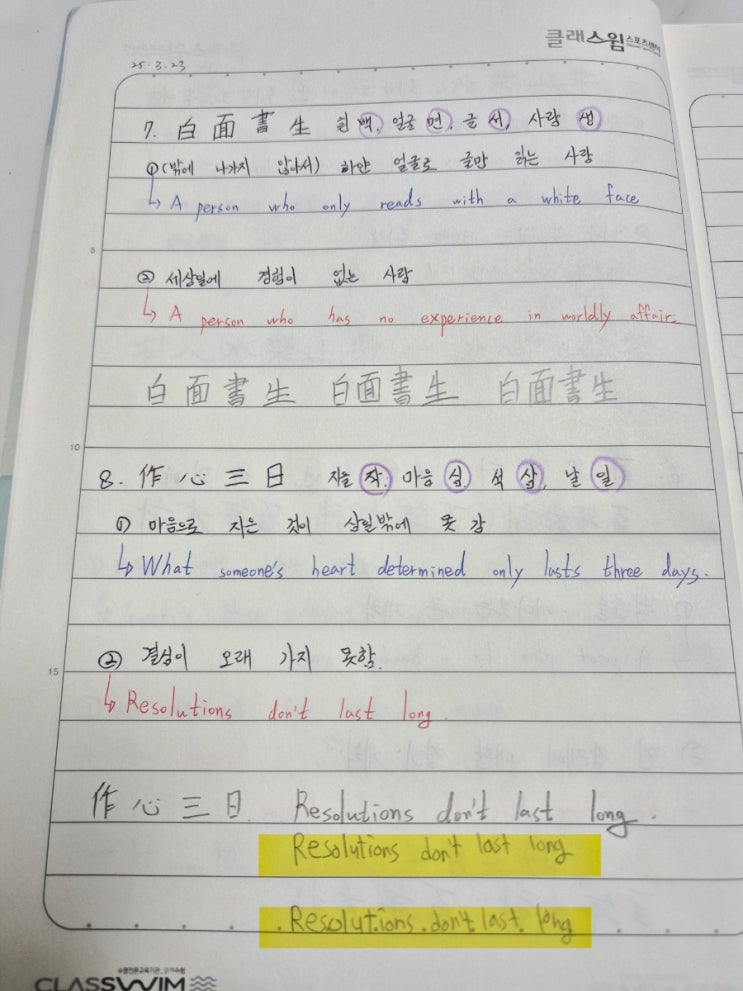 클래스윔 스포츠센터
25.3.23
7. 白面書生 흰 백, 얼굴 면, 글 서, 사람 생
① (밖에 나가지 않아서) 하얀 얼굴로 글만 읽는 사람
↳ A person who only reads with a white face
5
② 세상일에 경험이 없는 사람
↳ A person who has no experience in worldly affair.
白面書生 白面書生 白面書生
10
8. 作心三日 지을 작, 마음 심, 석 삼, 날 일
① 마음으로 지은 것이 삼일밖에 못 감
↳ What someone's heart determined only lasts three days.
② 결심이 오래 가지 못함.
15
↳ Resolutions don't last long.
作心三日 Resolutions don't last long.
Resolutions don't last long
Resolutions don't last long
CLASSWIM